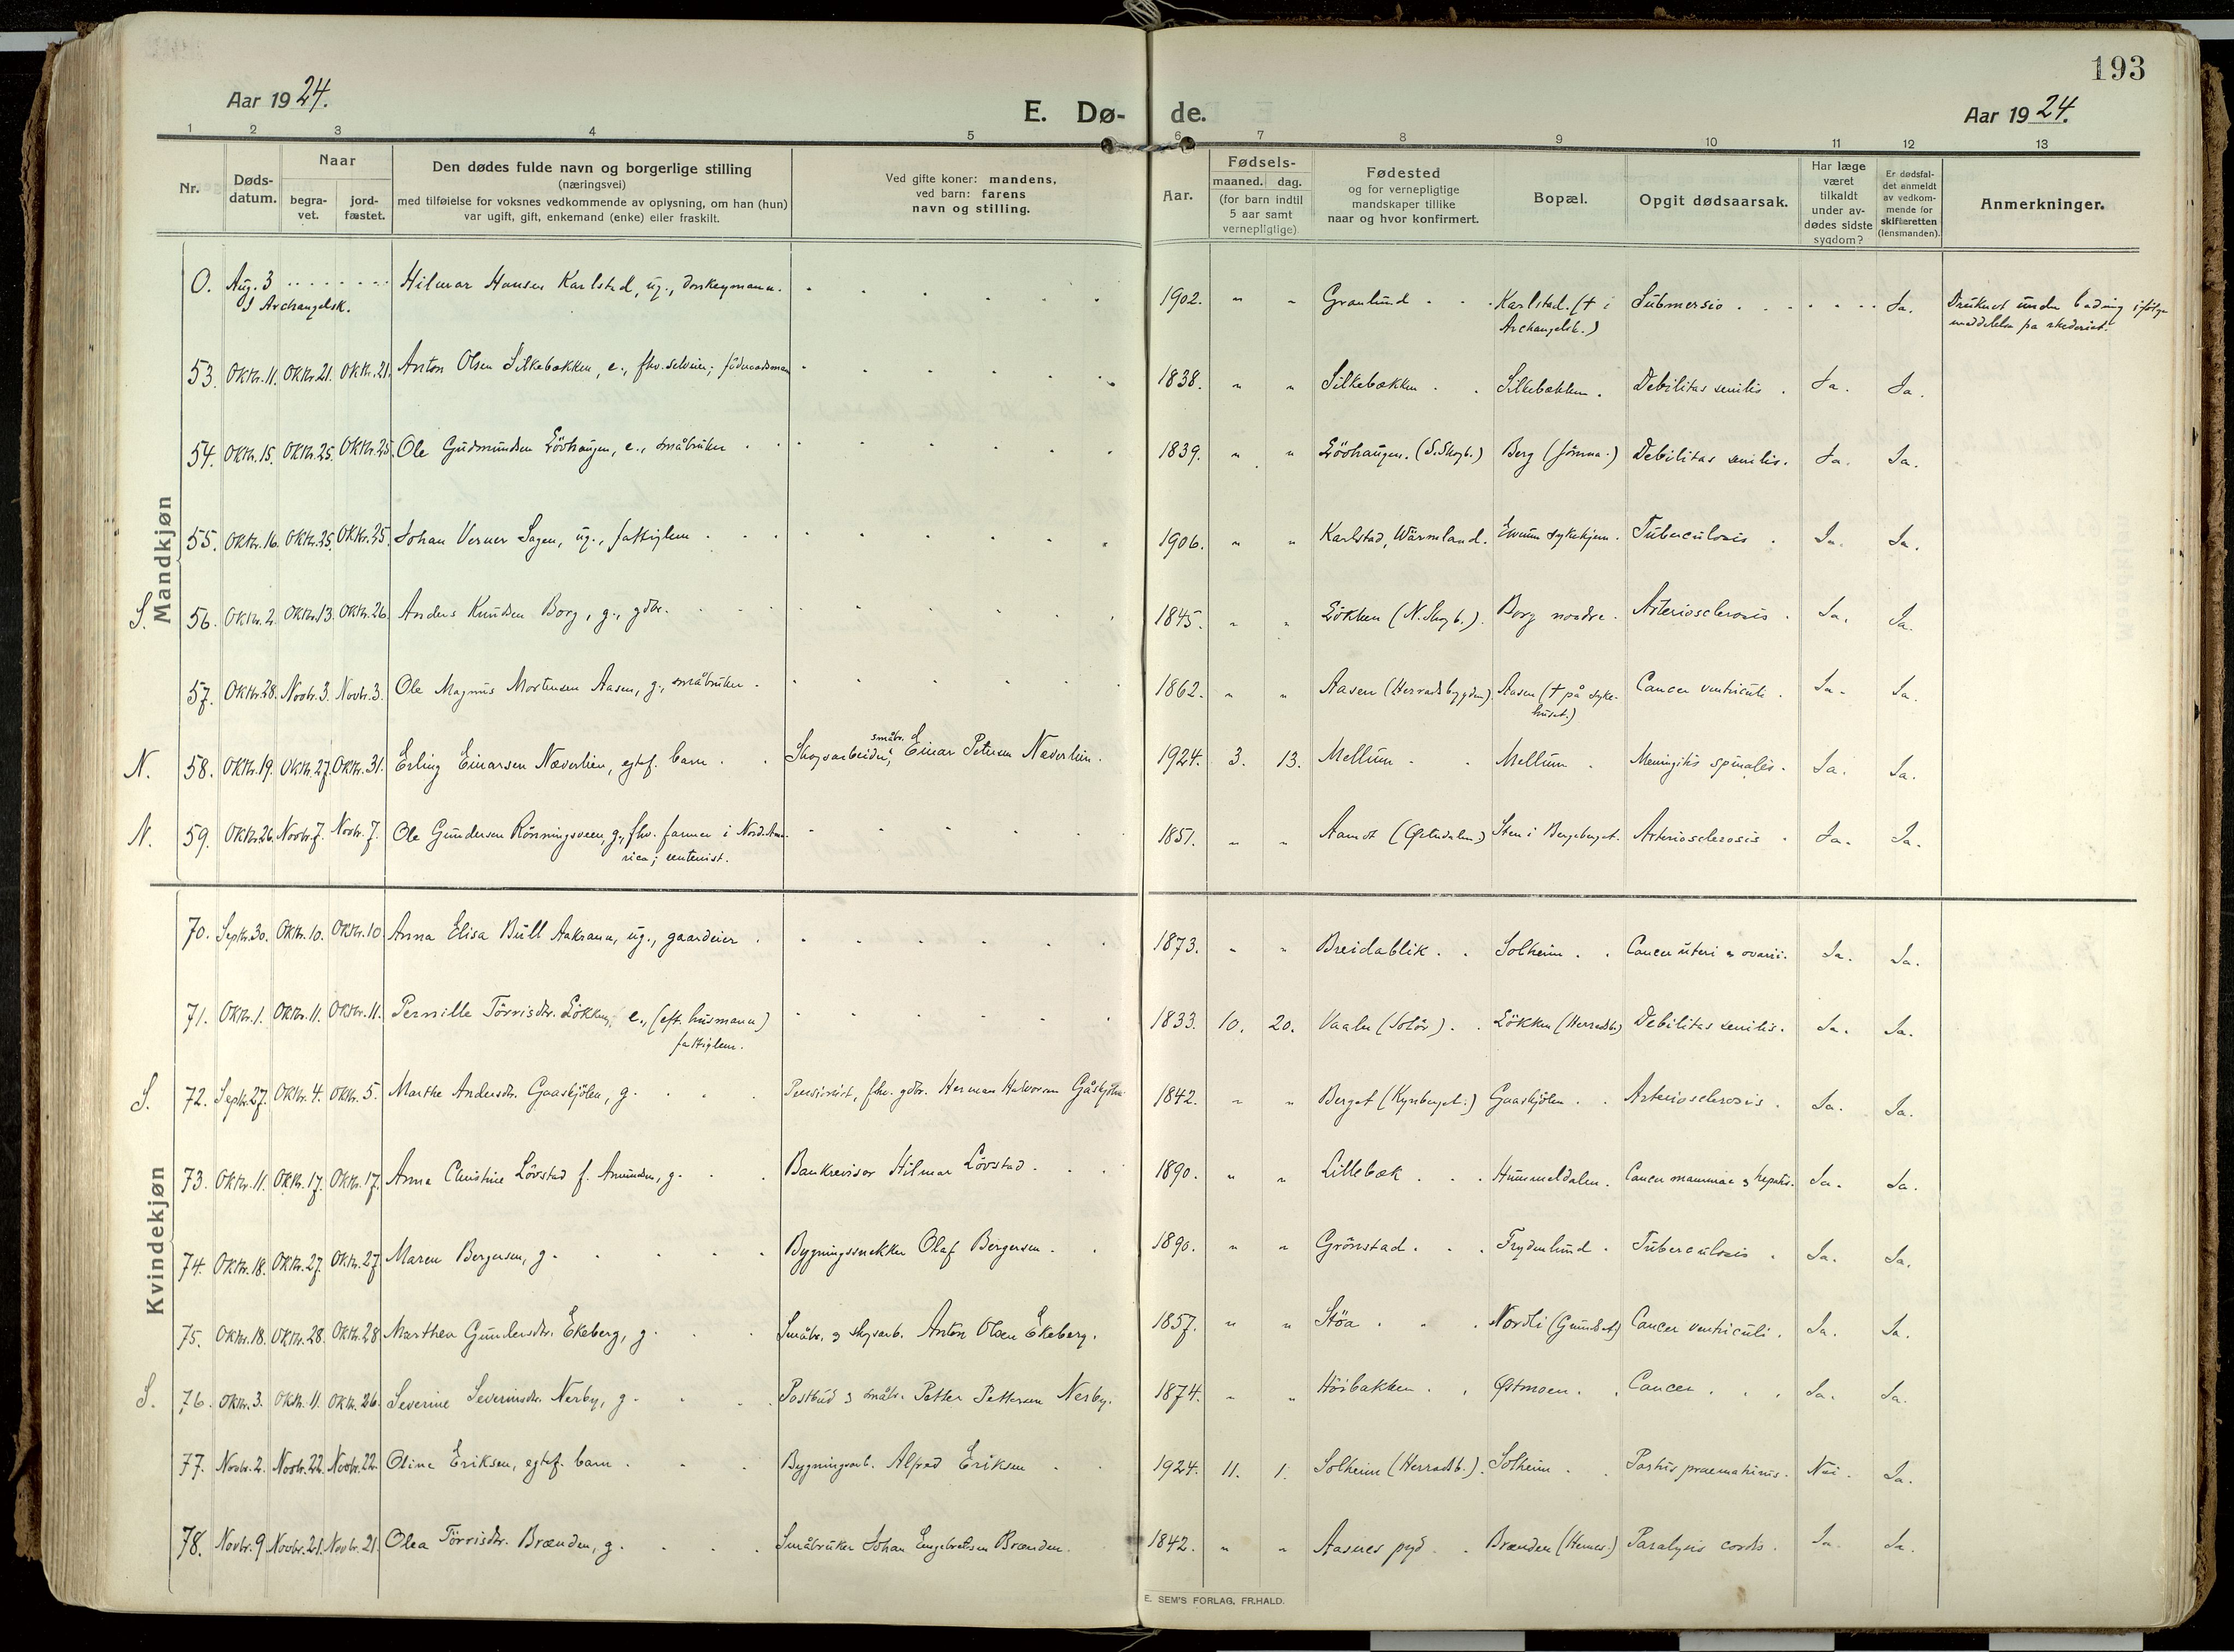 193
Aar 1924.
E. Dø-
de.
Aar 1924.
1 2 3 4 5 6 7 8 9 10 11 12 13
Nr.
Døds-
datum.
Naar
begra-
vet.
jord-
fæstet.
Den dødes fulde navn og borgerlige stilling
(næringsvei)
med tilføielse for voksnes vedkommende av oplysning, om han (hun)
var ugift, gift, enkemand (enke) eller fraskilt.
Ved gifte koner: mandens,
ved barn: farens
navn og stilling.
Aar.
Fødsels-
maaned. dag.
(for barn indtil
5 aar samt
vernepligtige)
Fødested
og for vernepligtige
mandskaper tillike
naar og hvor konfirmert.
Bopæl.
Opgit dødsaarsak.
Har læge
været
tilkaldt
under av-
dødes sidste
sygdom?
Er dødsfal-
det anmeldt
av vedkom-
mende for
skifteretten
(lensmanden).
Anmerkninger.
Mandkjøn
0. Aug. 3 Hilmar Hansen Karlstad, ug., donkeymann. 1902. " " Granlund Karlstad. († i Submersio Ja. Druknet under badning ifølge
I Archangelsk. Archangelsk.) meddelelse fra rhederiet.
53. Oktbr. 11. Oktbr. 21. Oktbr. 21. Anton Olsen Silkebækken, e., fhv. selveier; föderaadsmann 1838. " " Silkebækken Silkebækken. Debilitas senilis. Ja. Ja.
54. Oktbr. 15. Oktbr. 25. Oktbr. 25. Ole Gudmundsen Lövhaugen, e., småbruker 1839. " " Lövhaugen. (S. Skogb.) Berg (Jömna.) Debilitas senilis. Ja. Ja.
55. Oktbr. 16. Oktbr. 25. Oktbr. 25. Johan Verner Sagen, ug., fattiglem 1906. " " Karlstad, Wärmland. Elverum sykehjem. Tuberculosis. Ja. Ja.
S. 56. Oktbr. 2. Oktbr. 13. Oktbr. 26. Anders Knudsen Borg, g., gdbr. 1845. " " Løkken (N. Skogb.). Borg nordre. Arteriosclerosis. Ja. Ja.
57. Oktbr. 28. Novbr. 3. Novbr. 3. Ole Magnus Mortensen Aasen, g., småbruker. 1862. " " Aasen (Herradsbygden) Aasen († på syke- Cancer ventriculi. Ja. Ja.
huset.)
småbr. &
N. 58. Oktbr. 19. Oktbr. 27. Oktbr. 31. Erling Einarsen Næverlien, egtef. barn. Skogsarbeider, Einar Petersen Næverlien. 1924. 3. 13. Mellum Mellum. Meningitis spinalis. Ja. Ja.
N. 59. Oktbr. 26. Novbr. 7. Novbr. 7. Ole Gundersen Rönningsveen, g., fhv. farmer i Nord. Ame- 1851. " " Aamot (Østerdalen.) Sten i Bergeberget. Arteriosclerosis Ja. Ja.
rica; rentenist.
Kvindekjøn
70. Septbr. 30. Oktbr. 10. Oktbr. 10 Anna Elisa Bull Aakrann, ug., gaardeier. 1873. " " Breidablik. Solheim. Cancer uteri & ovarii. Ja. Ja.
71. Oktbr. 1. Oktbr. 11. Oktbr. 11. Pernille Törrisdtr. Løkken, e., (eft. husmann) 1833. 10. 20. Vaaler (Solör). Løkken (Herradsb.) Debilitas senilis. Ja. Ja.
fattiglem.
S. 72. Septbr. 27. Oktbr. 4. Oktbr. 5. Marthe Andersdtr. Gaaskjölen, g. Pensionist, fhv. gdbr. Herman Halvorsen Gåskjölen 1842. " " Berget (Kynberget.) Gaaskjölen. Arteriosclerosis. Ja. Ja.
73. Oktbr. 11. Oktbr. 17. Oktbr. 17. Anna Christine Lövstad f. Amundsen, g. Bankrevisor Hilmar Lövstad. 1890. " " Lillebæk Hummeldalen. Cancer mammae & hepatis. Ja. Ja.
74. Oktbr. 18. Oktbr. 27. Oktbr. 27 Maren Bergersen, g. Bygningssnekker Olaf Bergersen. 1890. " " Grönstad. Frydenlund. Tuberculosis. Ja. Ja.
75. Oktbr. 18. Oktbr. 28. Oktbr. 28 Marthea Gundersdtr. Ekeberg, g. Småbr. & skogsarb. Anton Olsen Ekeberg. 1857. " " Stöa Nordli (Grundset) Cancer ventriculi. Ja. Ja.
S. 76. Oktbr. 3. Oktbr. 11. Oktbr. 26. Severine Severinsdtr. Nerby, g. Postbud & småbr. Petter Pettersen Nerby. 1874. " " Höibakken. Østmoen. Cancer. Ja. Ja.
77. Novbr. 2. Novbr. 22. Novbr. 22 Oline Eriksen, egtef. barn. Bygningsarb. Alfred Eriksen 1924. 11. 1. Solheim (Herradsb.). Solheim. Partus praematurus. Nei. Ja.
78. Novbr. 9 Novbr. 21. Novbr. 21 Olea Törrisdtr. Brænden, g. Småbruker Johan Engebretsen Brænden. 1842. " " Aasnes pgd. Brænden (Hernes.) Paralysis cordis. Ja. Ja.
E. SEM'S FORLAG, FR.HALD.